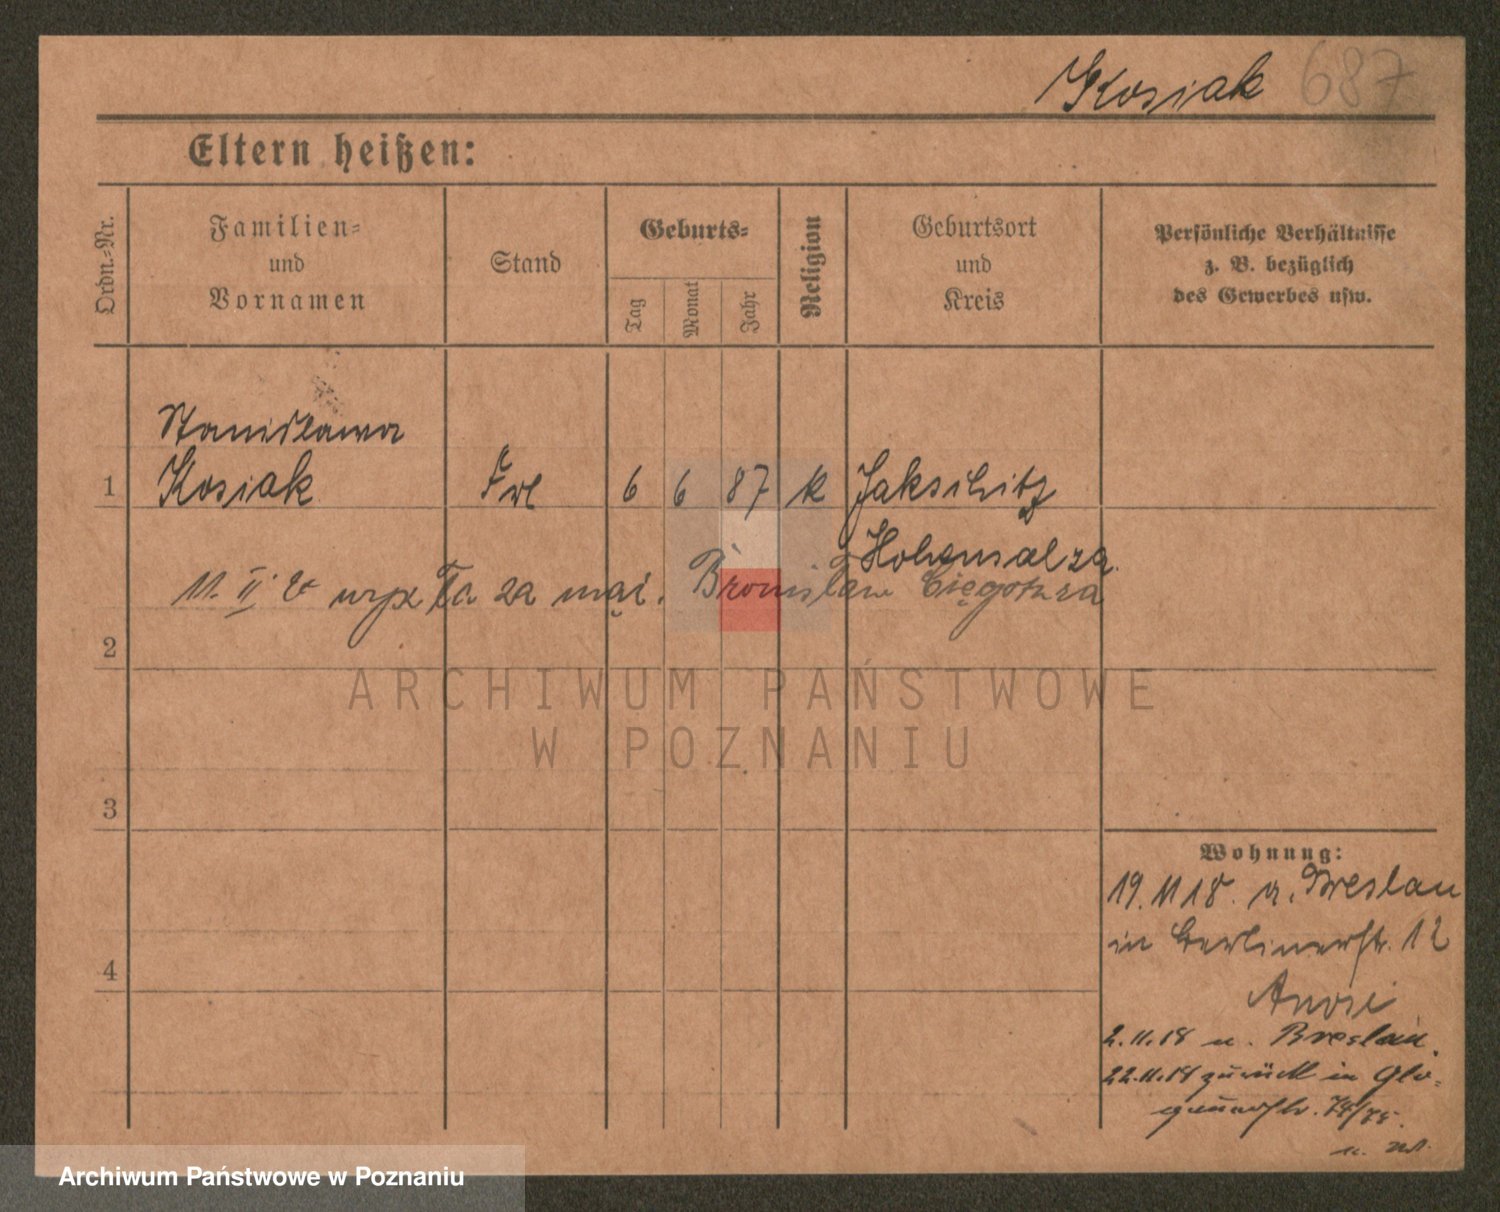 Kosiak 687
Eltern heißen:
Ordn.=Nr.
Familien=
und
Vornamen
Stand
Geburts=
Tag
Monat
Jahr
Religion
Geburtsort
und
Kreis
Persönliche Verhältnisse
z. B. bezüglich
des Gewerbes usw.
Stanisława
1 Kosiak Frl 6 6 87 k Jaksibitz
Hohensalza
11. II za Bronisław
2
ARCHIWUM PAŃSTWOWE
W POZNANIU
3
Wohnung:
19. 11 18. a. Breslau
in Berlinerstr. 12
4
2.11.18 n. Breslau.
22.11.18 zurück in Glo-
gauerstr. 74/75.
Archiwum Państwowe w Poznaniu